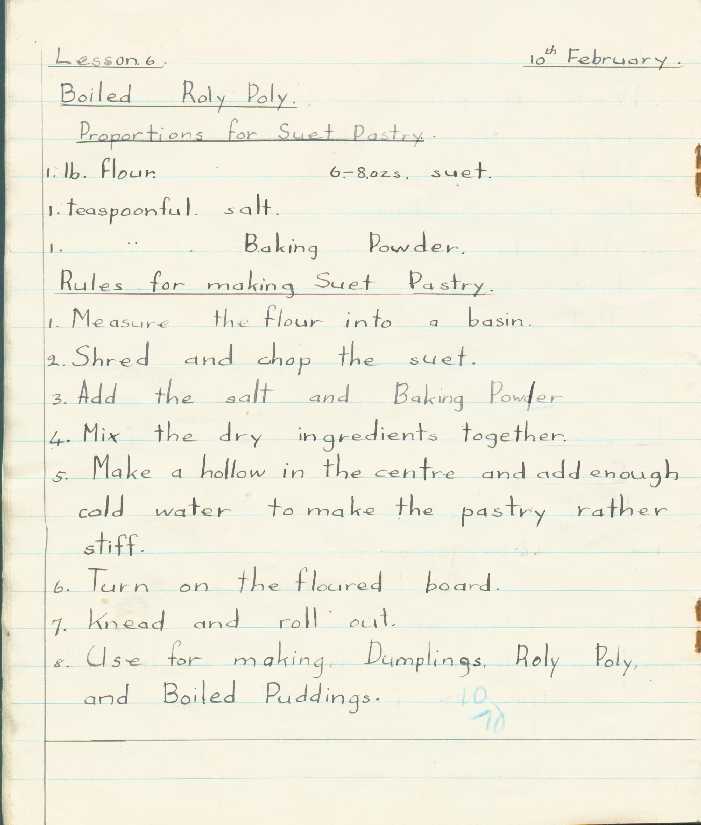 Lesson 6. 10th February.
Boiled Roly Poly.
Proportions for Suet Pastry.
1. lb. flour. 6-8.ozs. suet.
1. teaspoonful. salt.
1. " . Baking Powder.
Rules for making Suet Pastry.
1. Measure the flour into a basin.
2. Shred and chop the suet.
3. Add the salt and Baking Powder
4. Mix the dry ingredients together.
5. Make a hollow in the centre and add enough
cold water to make the pastry rather
stiff.
6. Turn on the floured board.
7. Knead and roll out.
8. Use for making. Dumplings. Roly Poly,
and Boiled Puddings.
10/10